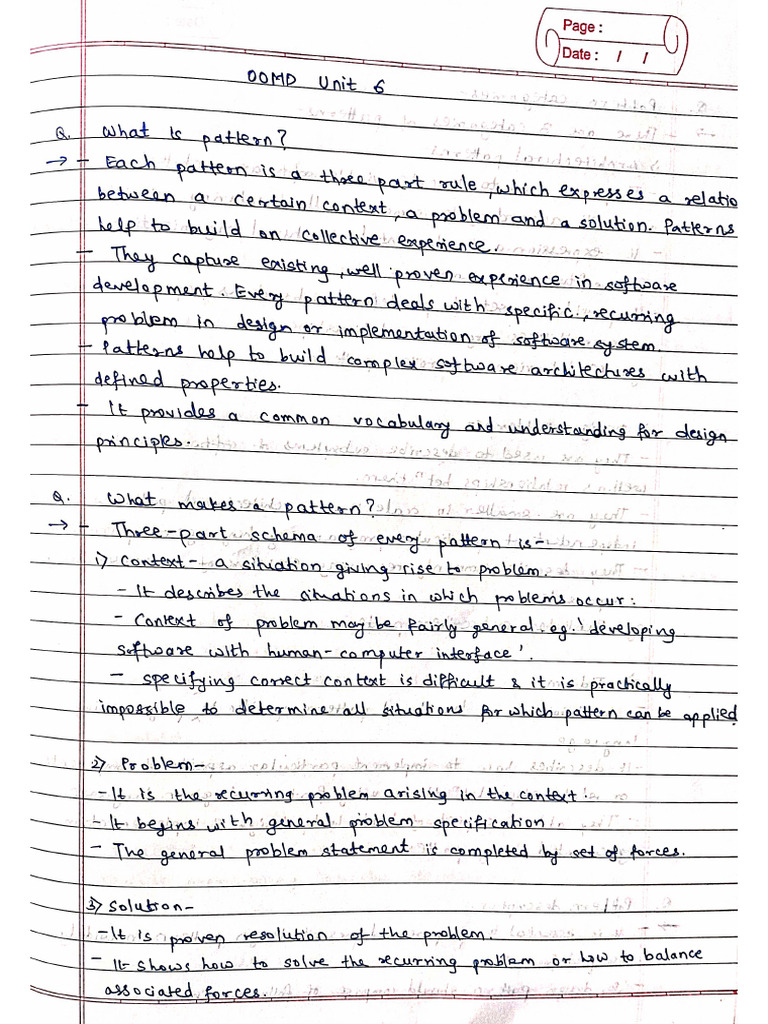 Page :
Date :   /   /
OOMD Unit 6
Q. What is pattern?
→ - Each pattern is a three part rule, which expresses a relatio
between a certain context, a problem and a solution. Patterns
help to build on collective experience.
- They capture existing, well proven experience in software
development. Every pattern deals with specific, recurring
problem in design or implementation of software system.
- Patterns help to build complex software architectures with
defined properties.
- It provides a common vocabulary and understanding for design
principles.
Q. What makes a pattern?
→ - Three-part schema of every pattern is-
1) Context - a situation giving rise to problem.
- It describes the situations in which problems occur.
- Context of problem maybe fairly general. eg. 'developing
software with human-computer interface'.
- specifying correct context is difficult & it is practically
impossible to determine all situations for which pattern can be applied
2) Problem-
- It is the recurring problem arising in the context.
- It begins with general problem specification
- The general problem statement is completed by set of forces.
3) Solution-
- It is proven resolution of the problem.
- It shows how to solve the recurring problem or how to balance
associated forces.